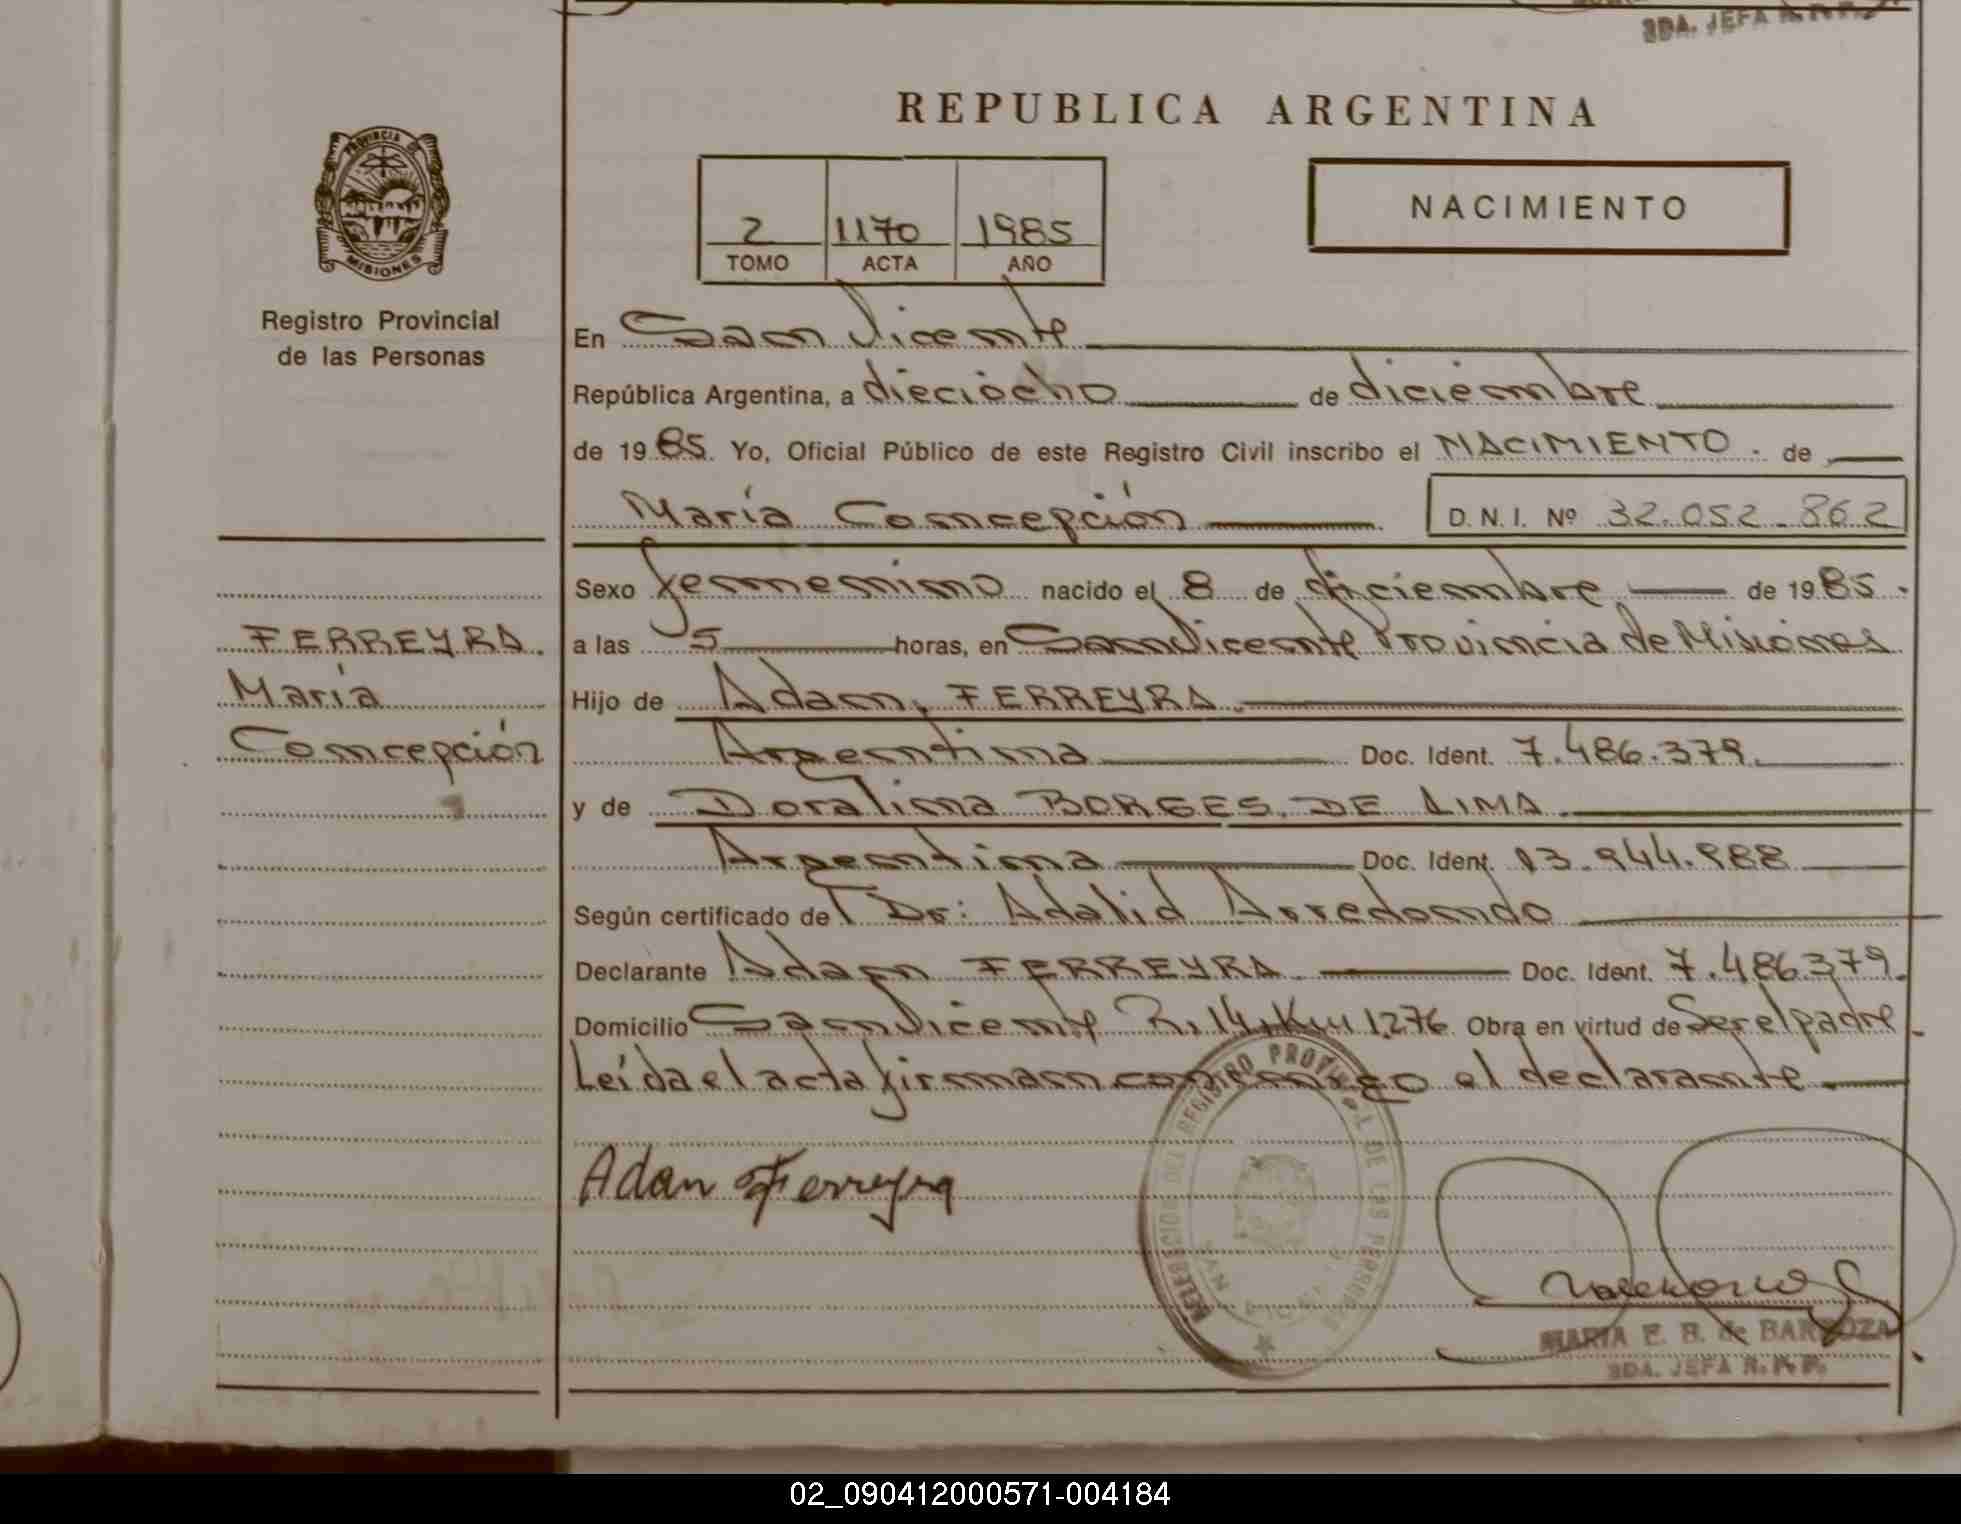 SDA. JEFA R. P. P.
REPUBLICA ARGENTINA
PROVINCIA DE
MISIONES
Registro Provincial
de las Personas
2 1170 1985
TOMO ACTA AÑO
NACIMIENTO
En San Vicente
República Argentina, a dieciocho de diciembre
de 1985. Yo, Oficial Público de este Registro Civil inscribo el NACIMIENTO. de
María Concepción
D. N. I. Nº 32.052.862
Sexo femenino nacido el 8 de diciembre de 1985.
FERREYRA.
María
Concepción
a las 5 horas, en San Vicente Provincia de Misiones
Hijo de Adan, FERREYRA.
Argentina Doc. Ident. 7.486.379.
y de Doralina BORGES, DE LIMA.
Argentina Doc. Ident. 13.944.988
Según certificado de Dr: Adalid Arredondo
Declarante Adan FERREYRA Doc. Ident. 7.486.379.
Domicilio San Vicente R. 14, Km 1276. Obra en virtud de Ser el padre.
Leída el acta firman conmigo el declarante.
Adan Ferreyra
DELEGACION DEL REGISTRO PROVINCIAL DE LAS PERSONAS
MARIA E. B. de BARBOZA
SDA. JEFA R. P. P.
02_090412000571-004184